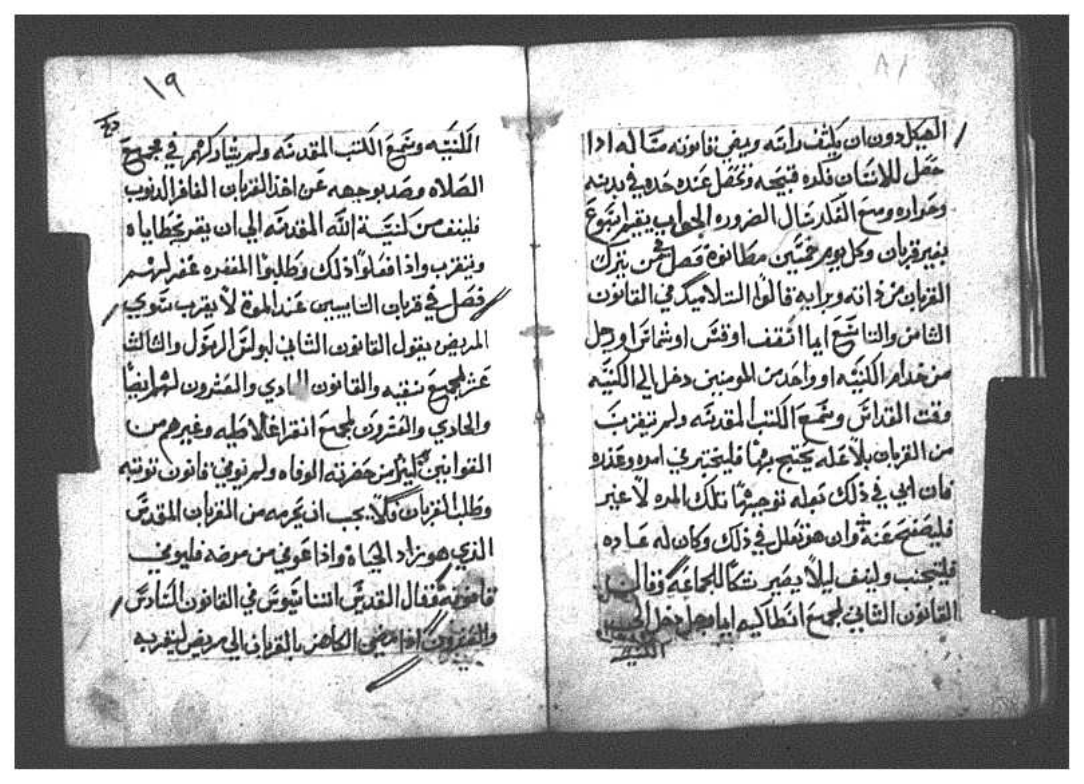 ٨١
الهيكل دون ان يكثف راثه ويفي قانونه مثاله اذا
حصل للانسان فكره قبيحه وتحصل عنده حده في بدنه
وحواره ومنع القلد الضروره الجواب يقيم اسبوع
بغير قربان وكل يوم خمسين مطانوة فصل فيمن يترك
القربان من ذاته وبرايه قالوا التلاميد في القانون
الثامن والتاسع ايما اسقف او قس او شماس او رجل
من خدام الكنيسه او واحد من المومنين دخل الي الكنيسه
وقت القداس وسمع الكتب المقدسه ولم يتقرب
من القربان بلا عله يحتج بها فليختبر في امره وعذره
فان ابي في ذلك بعله توجبها تلك المره لا غير
فليصفح عنه وان هو تعلل في ذلك وكان له عاده
فليتجنب ولينف ليلا يصير شكا للجماعه وقال
القانون الثاني لمجمع انطاكيه ايما رجل دخل الي
الكنيسه
١٩
الكنيسه وسمع الكتب المقدسه ولم يشاركهم في جميع
الصلاه وصد بوجهه عن اخذ القربان الغافر الدنوب
فلينف من كنيسة الله المقدسه الي ان يقر بخطاياه
ويتقرب واذا فعلوا ذلك وطلبوا المغفره غفر لهم
فصل في قربان التايبين عند الموة لا يقرب سوي
المريض بقول القانون الثاني لبولس الرسول والثالث
عشر لمجمع نيقيه والقانون الحادي والعشرون لهم ايضا
والحادي والعشرون لمجمع انقرا غلاطيه وغيرهم من
القوانين كثيرا من حضرته الوفاه ولم يوفي قانون توبته
وطلب القربان فلا يجب ان يحرمه من القربان المقدس
الذي هو زاد الحياة واذا عوفي من مرضه فليوفي
قانونه فقال القديس اتناسيوس في القانون السادس
والعشرون اذا مضي الكاهن بالقربان الي مريض ليقربه